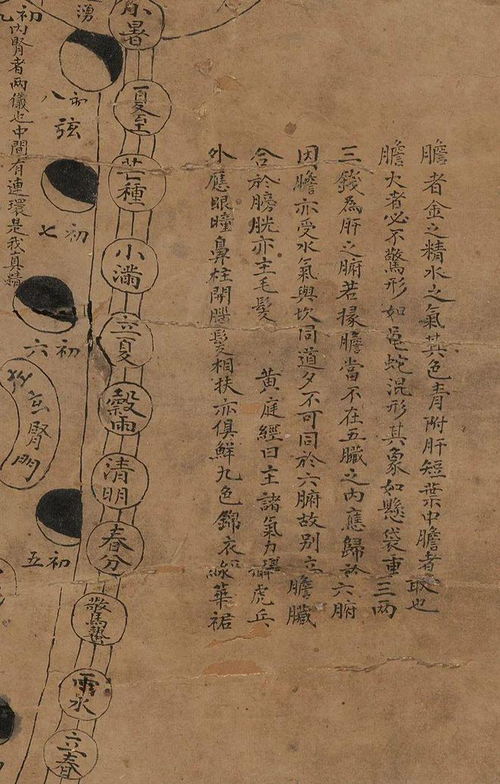 膽者金之精水之氣其色青附肝短葉中膽者取也
膽大者必不驚形如龜蛇混形其象如懸袋重三兩
三錢為肝之腑若據膽當不在五臟之內應歸於六腑
因膽亦受水氣與坎同道又不可同於六腑故別立膽臟
合於膀胱亦主毛髮 黃庭經曰主諸氣力攝虎兵
外應眼瞳鼻柱間腦髮相扶亦俱鮮九色錦衣綠華裙
小暑
夏至
芒種
小滿
立夏
穀雨
清明
春分
驚蟄
雨水
立春
湧
初九
初八
弦
初七
初六
初五
內腎者兩儀也中間有連環是我真精
玄腎門